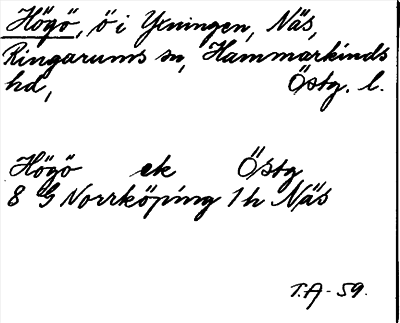 Högö, ö i Yxningen, Näs,
Ringarums sn, Hammarkinds
hd, Östg. l.
Högö ek Östg
8 G Norrköping 1h Näs
T.A - 59.